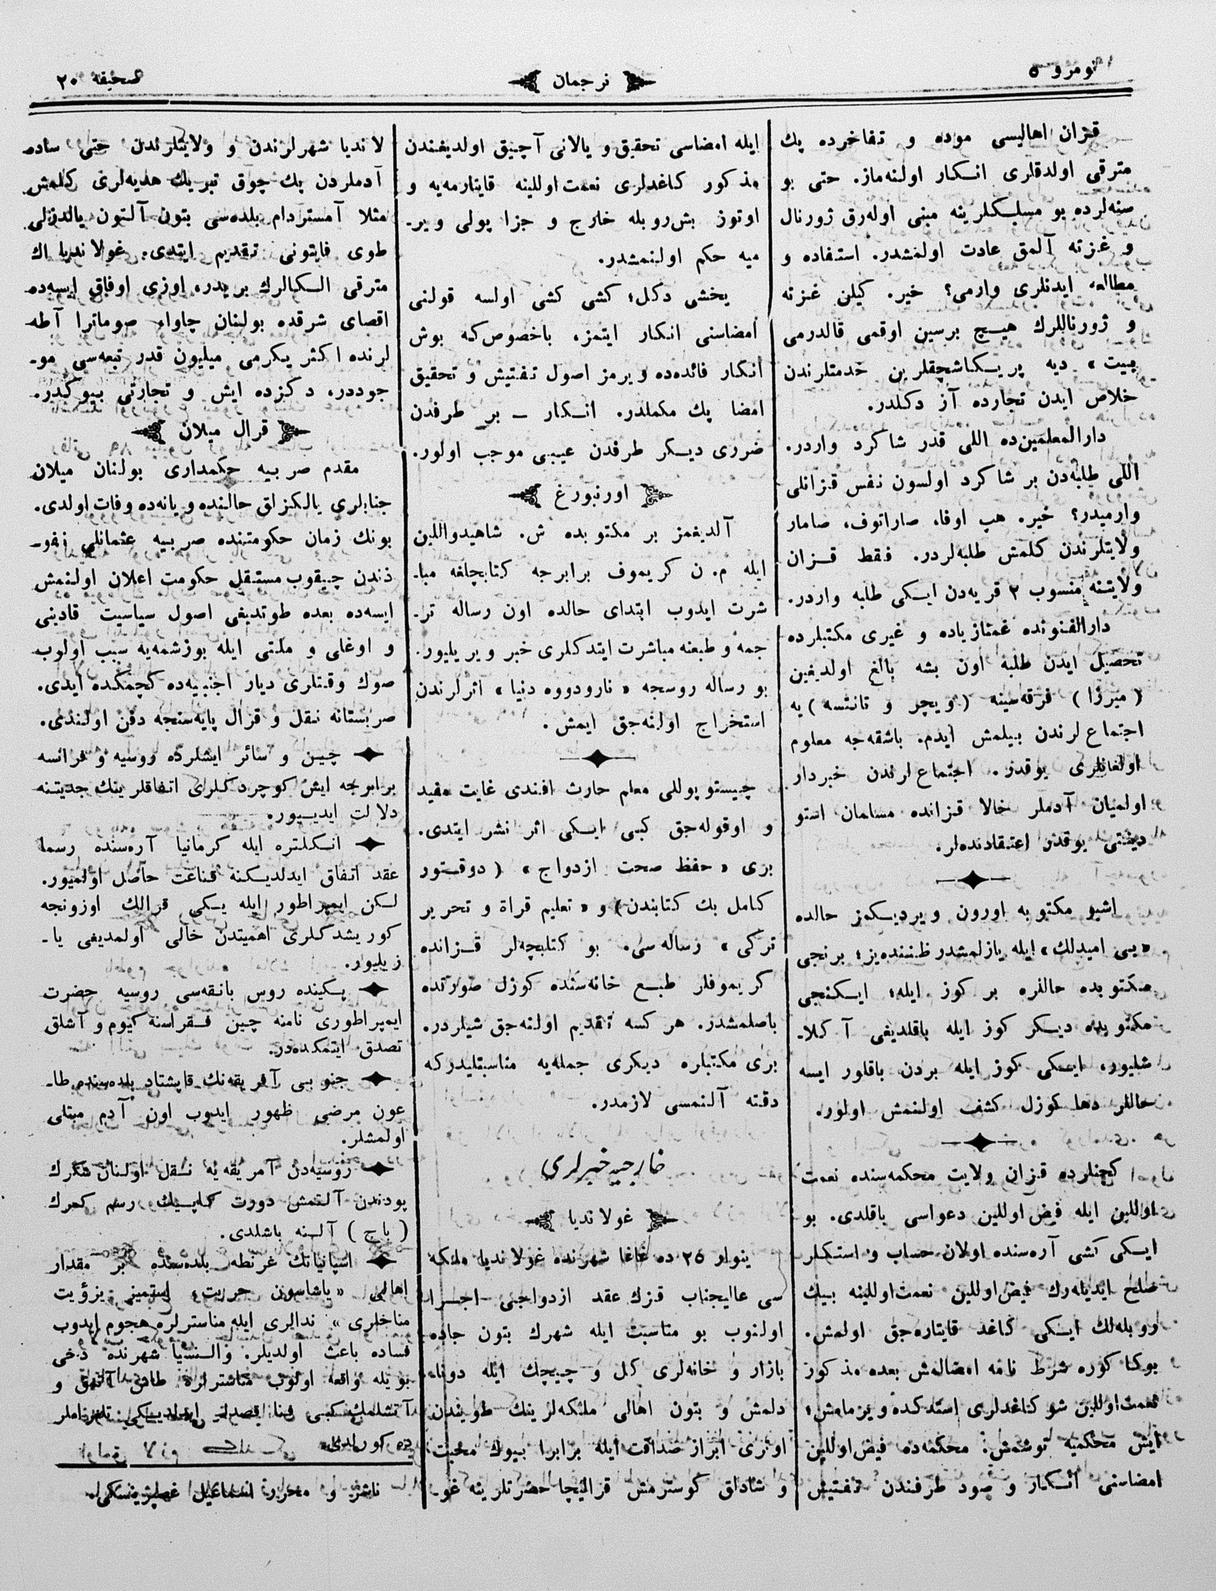 نومرو ٥
ترجمان
صحیفه ٢٠
قزان اهالیسی موده و تفاخرده پك
مترقی اولدقلری انكار اولنه‌ماز. حتی بو
سنه‌لرده بو مسلكلرینه مبنی اوله‌رق ژورنال
و غزته آلمق عادت اولنمشدر. استفاده و
مطالعه ایدنلری وارمی؟ خیر. كیلن غزته
و ژورناللرك هیچ برسین اوقمی قالدرمی
دیه پریكاشچقلرین خدمتلرندن
خلاص ایدن تجارده آز دكلدر.
دارالمعلمین‌ده اللی قدر شاكرد واردر.
اللی طلبه‌دن بر شاكرد اولسون نفس قزانلی
وارمیدر؟ خیر. هپ اوفا، صاراتوف، صامار
ولایتلرندن كلمش طلبه‌لردر. فقط قزان
ولایتنه منسوب ٢ قریه‌دن ایكی طلبه واردر.
دارالفنونده غمنازیاده و غیری مكتبلرده
تحصیل ایدن طلبه اون بشه بالغ اولدیغین
(میرزا) فرقه‌سینه (ویچر و تانتسه) یه
اجتماع‌لرندن بیلمش ایدم. باشقه‌جه معلوم
اولغانلری یوقدر. اجتماع‌لرندن خبردار
اولمیان آدملر حالا قزانده مسلمان استو
دینتی یوقدر اعتقادنده‌لر.
اشبو مكتوبه اورون ویردیكمز حالده
«یی امیدلك» ایله یازلمشدر ظننده‌یز؛ برنجی
مكتوبده حاللره بر كوز ایله؛ ایكنجی
مكتوبده دیكر كوز ایله باقلدیغی آكلا-
شلیور، ایكی كوز ایله بردن باقلور ایسه
حاللر دها كوزل كشف اولنمش اولور.
كچنلرده قزان ولایت محكمه‌سنده نعمت
اوللین ایله فیض‌اوللین دعواسی باقلدی. بو
ایكی كشی آره‌سنده اولان حساب و استكلر
صلح ایدیله‌رك فیض‌اوللین نعمت‌اوللینه بیك
روبله‌لك ایكی كاغد قایتاره‌جق اولمش.
بوكا كوره شرط نامه امضالمش بعده مذكور
نعمت‌اوللین شو كاغدلری استدكده ویرمامش؛
ایش محكمیه توشمش. محكمه‌ده فیض‌اوللین
امضاسنی انكار و صود طرفندن تفتیش
ایله امضاسی تحقیق و یالانی آچیق اولدیغندن
مذكور كاغدلری نعمت‌اوللینه قایتارمه‌یه و
اوتوز بش‌روبله خارج و جزا پولی ویر-
میه حكم اولنمشدر.
یخشی دكل؛ كشی كشی اولسه قولنی
امضاسنی انكار ایتمز. باخصوص‌كه بوش
انكار فائده‌ده ویرمز اصول تفتیش و تحقیق
امضا پك مكملدر. انكار — بر طرفدن
ضرری دیكر طرفدن عیبی موجب اولور.
اورنبورغ
آلدیغمز بر مكتوبده ش. شاهیدواللین
ایله م. ن كریموف برابرجه كتابجلغه مبا-
شرت ایدوب ابتدای حالده اون رساله تر-
جمه و طبعنه مباشرت ایتدكلری خبر ویریلیور.
بو رساله روسجه «نارودووه دنیا» اثرلرندن
استخراج اولنه‌جق ایمش.
چیستوپوللی معلم حارث افندی غایت مفید
و اوقوله‌جق كبی ایكی اثر نشر ایتدی.
بری «حفظ صحت ازدواج» (دوقتور
كامل بك كتابندن) و «تعلیم قرأة و تحریر
تركی» رساله‌سی. بو كتابچه‌لر قزانده
كریموفلر طبع خانه‌سنده كوزل صورتده
باصلمشدر. هر كسه تقدیم اولنه‌جق شیلردر.
بری مكتبلره دیكری جمله‌یه مناسبتلیدركه
دقته آلنمسی لازمدر.
خارجیه خبرلری
غولاندیا
ینوار ٢٥ ده غاغا شهرنده غولاندیا ملكه
سی عالیجناب قزك عقد ازدواجی اجرا
اولنوب بو مناسبت ایله شهرك بتون جاده
بازار و خانه‌لری كل و چیچك ایله دونا-
دلمش و بتون اهالی ملكه‌لرینك طویندن
اوتری ابراز صداقت ایله برابرا بیوك محبت
و شادلق كوسترمش قرالیچا حضرتلرینه غو-
لاندیا شهرلرندن و ولایتلرندن حتی ساده
آدملردن پك چوق تبریك هدیه‌لری كلمش
مثلا آمستردام بلده‌سی بتون آلتون یالدزلی
طوی فایتونی تقدیم ایتدی. غولاندیا اك
مترقی الكالرك بریدر. اوزی اوفاق ایسه‌ده
اقصای شرقده بولنان جاوا، صوماترا آطه
لرنده اكثر یكرمی میلیون قدر تبعه‌سی مو-
جوددر. دكزده ایش و تجارتی بیوكدر.
قرال میلان
مقدم صربیه حكمداری بولنان میلان
جنابلری یالكزلق حالنده ویانه‌ده وفات اولدی.
بونك زمان حكومتنده صربیه عثمانلی نفو-
ذندن چیقوب مستقل حكومت اعلان اولنمش
ایسه‌ده بعده طوتدیغی اصول سیاسیت قادینی
و اوغلی و ملتی ایله بوزشمه‌یه سبب اولوب
صوك وقتلری دیار اجنبیه‌ده كچمكده ایدی.
صربستانه نقل و قرال پایه‌سنجه دفن اولندی.
چین و سائر ایشلرده روسیه و فرانسه
برابرجه ایش كوچردكلری اتفاقلرینك جدیتنه
دلالت ایدییور.
انكلتره ایله كرمانیا آره‌سنده رسما
عقد اتفاق ایدلدیكنه قناعت حاصل اولمیور.
لكن ایمپراطور ایله یكی قرالك اوزونجه
كوریشدكلری اهمیتدن خالی اولمدیغی یا-
زیلیور.
پكینده روس بانقه‌سی روسیه حضرت
ایمپراطوری نامنه چین فقراسنه كیوم و آشلق
تصدق ایتمكده‌در.
جنوبی آفریقه‌نك قاپشتاد بلده‌سنده طا-
عون مرضی ظهور ایدوب اون آدم مبتلی
اولمشلر.
روسیه‌دن آمریقه‌یه نقل اولنان شكرك
پودندن آلتمش دورت كاپیك رسم كمرك
(باج) آلنه باشلدی.
اسپانیانك غرنطه بلده‌سنده بر مقدار
اهالی «یاشاسون حریت، استمیز یزؤیت
مناخلری» ندالری ایله مناسترلره هجوم ایدوب
فساده باعث اولدیلر. والنسیا شهرنده دخی
بویله واقعه اولوب مناسترلره طاش آتمق و
آتشلمك كبی فنا قصدلر
كورلدی.
ناشر و محرر اسماعیل غصپرینسكی.